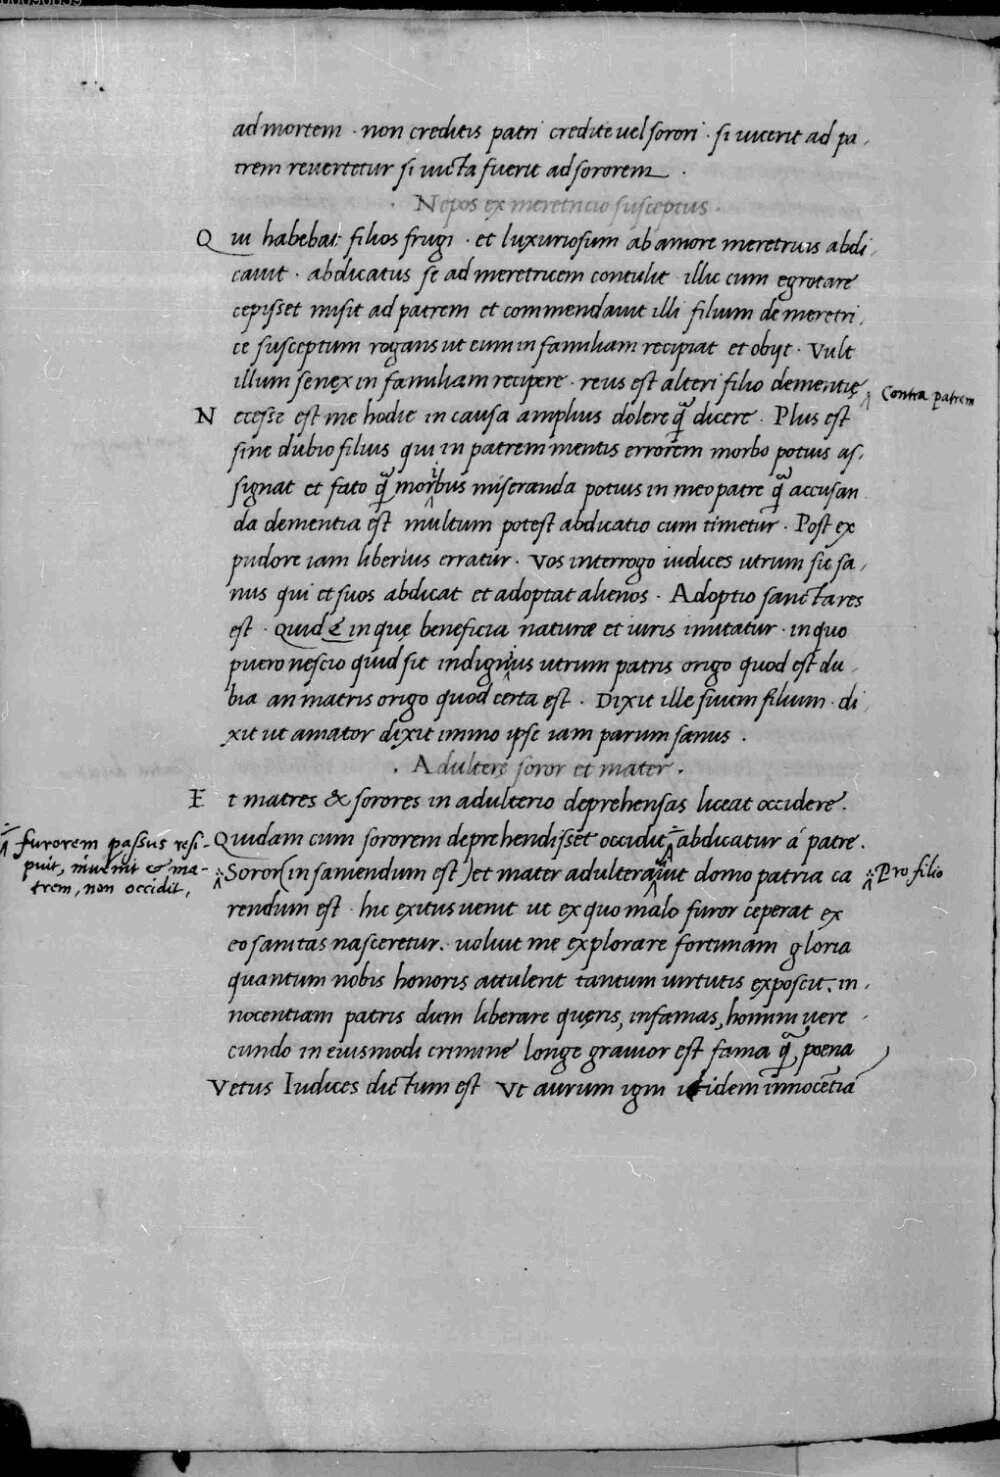 ad mortem · non creditis patri credite uel sorori · si uicerit ad pa,
trem reuertetur si uicta fuerit ad sororem ·
· Nepos ex meretricio susceptus ·
Qui habebat filios frugi · et luxuriosum ab amore meretricis abdi,
cauit · abdicatus se ad meretricem contulit illic cum egrotare
cepisset misit ad patrem et commendauit illi filium de meretri,
ce susceptum rogans ut eum in familiam recipiat et obijt · Vult
illum senex in familiam recipere · reus est alteri filio dementię
Contra patrem
Necesse est me hodie in causa amplius dolere q̃ dicere · Plus est
sine dubio filius qui in patrem mentis errorem morbo potius as,
signat et fato q̃ moribus miseranda potius in meo patre q̃ accusan
da dementia est multum potest abdicatio cum timetur · Post ex
pudore iam liberius erratur · Vos interrogo iudices utrum sit sa,
nus qui et suos abdicat et adoptat alienos · Adoptio sancta res
est · Quid & in quę beneficia naturæ et iuris imitatur · in quo
puero nescio quid sit indignius utrum patris origo quod est du,
bia an matris origo quod certa est · Dixit ille suum filium · di,
xit ut amator dixit immo ipse iam parum sanus ·
· Adulterę soror et mater ·
Et matres & sorores in adulterio deprehensas liceat occidere ·
furorem passus resi-
puit, inuenit & ma-
trem, non occidit,
Quidam cum sororem deprehendisset occidit abdicatur á patre ·
Soror (in saniendum est) et mater adulterauit domo patria ca
Pro filio
rendum est · hic exitus uenit ut ex quo malo furor ceperat ex
eo sanitas nasceretur. uoluit me explorare fortunam gloria
quantum nobis honoris attulerit tantum uirtutis exposcit. in,
nocentiam patris dum liberare quęris, infamas, homini uere
cundo in eiusmodi crimine longe grauior est fama q̃ poena
Vetus Iudices dictum est Vt aurum igni itidem innocētia